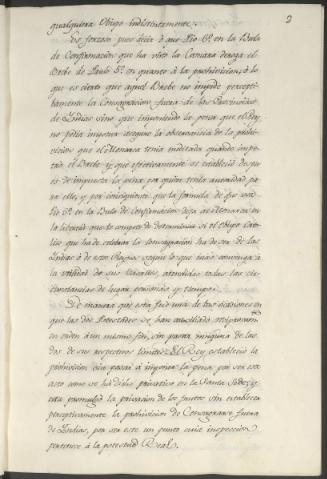 2
qualquiera Obispo indistintamente.
Es forzoso pues decir ó que Pio 6º en la Bula
de Confirmacion que ha visto la Camara deroga el
Brebe de Paulo 5º en quanto á la prohivicion, ó lo
que es cierto que aquel Brebe no impide precepti-
bamente la Consagracion fuera de las Provincias
de Yndias sino que imponiendo la pena que el Rey
no podia imponer asegura la observancia de la prohi-
vicion que el Monarca tenia meditada quando impe-
tró el Brebe y que efectivamente se estableció despu-
es de impuesta la pena por quien tenia autoridad pa-
ra ello, y por consiguiente que la formula de que usa
Pio 6º en la Bula de Confirmacion deja al Monarca en
la libertad que le compete de determinar si el Obispo Cato-
lico que ha de celebrar la Consagracion ha de ser de las
Yndias ó de estos Reynos segun lo que mas convenga á
la utilidad de sus Vasallos, atendidas todas las cir-
cunstancias de lugar personas y tiempo.
De manera que esta fue una de las ocasiones en
que las dos Potestades se han auxiliado reciprocamente
en orden á un mismo fin, sin pasar ninguna de las
dos de sus respectivos limites: El Rey estableció la
prohivicion sin pasar á imponer la pena por ser este
acto como se ha dicho privativo en la Santa Sede; y
esta promulgó la privacion de los frutos sin establecer
preceptivamente la prohivicion de Consagrarse fuera
de Yndias, por ser este un punto cuia inspeccion
pertenece á la potestad Real.